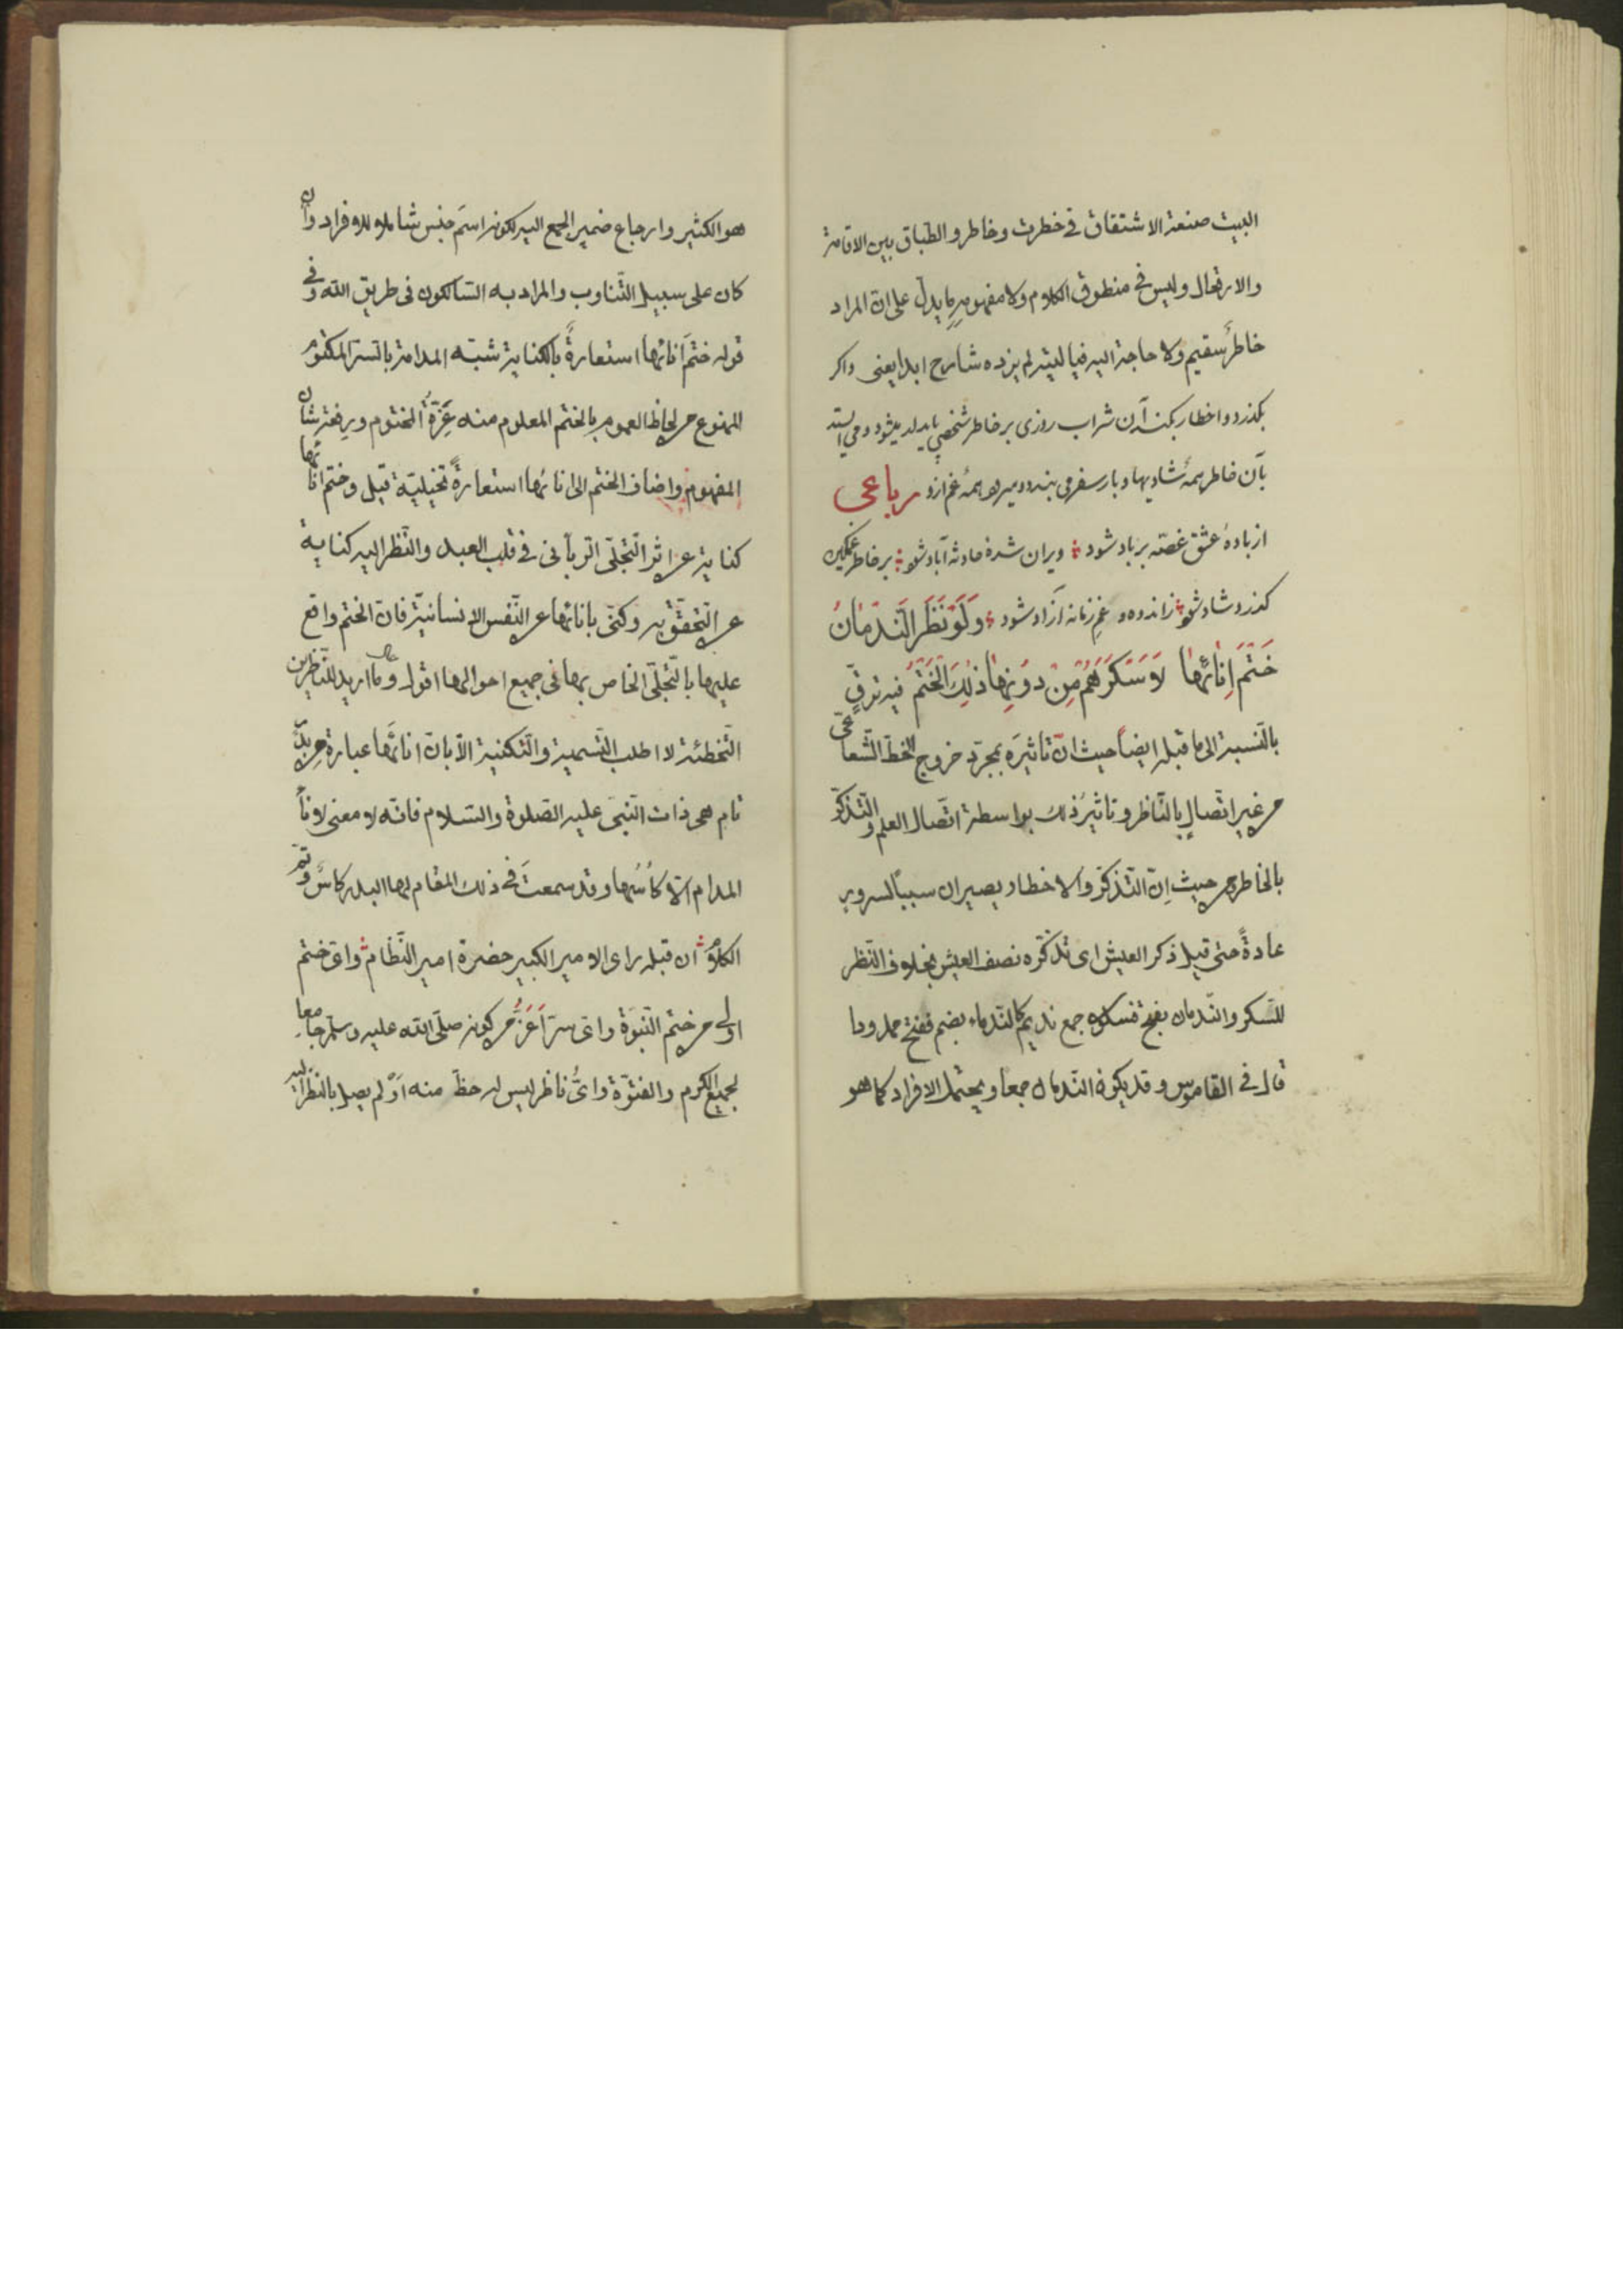 البيت صنعة الاشتقاق في خطرت وخاطر والطباق بين الاقامة
والارتحال وليس في منطوق الكلام ولا مفهومه ما يدل على ان المراد
خاطر سقيم ولا حاجة اليه فيا ليته لم يزده شارح ابدا يعنى واكر
بكذرد واخطار بكند آن شراب روزى بر خاطر شخصي
بآن خاطر همهٔ شاديها وبار سفر مى بندد وميرود همهٔ غم ازو رباعى
از بادهٔ عشق غصّه بر باد شود ویران شدهٔ حادثه آباد شود بر خاطر غمكين
كذرد شاد شود ز اندوه و غم زمانه آزاد شود وَلَوْ نَظَرَ النَّدمَانُ
خَتْمَ اِنَائِهَا لَاَسْكَرَهُم مِنْ دُونِهَا ذٰلِكَ الْخَتْمُ فيه ترقٍّ
بالنسبة الى ما قبله ايضاً حيث انّ تاثيره بمجرّد خروج الخط الشعاعىّ
من غير اتّصالٍ بالنّاظر وتاثيرُ ذلك بواسطة اتّصال العلم والتّذكّر
بالخاطر من حيث اِنّ التّذكّر والاخطار يصيران سبباً للسرور
عادةً حتى قيل ذكر العيش اى تذكّره نصف العيش بخلاف النّظر
للسّكر والنّدمان بفتح فسكون جمع نديم كالنّدماء بضم ففتح ممدودا
قال في القاموس وقد يكون النّدمان جمعا ويحتمل الافراد كما هو
هو الكثير وارجاع ضمير الجمع اليه لكونه اسمَ جنس شاملا للافراد وان
كان على سبيل التّناوب والمراد به السّالكون في طريق اللّه وفى
قوله ختمَ انائها استعارةً بالكناية شبّه المدامة بالسّر المكتوم
الممنوع من لحاظ العموم بالختم المعلوم منه عزّةُ المختوم ورفعة شان
المفهوم واضاف الختم الى انائها استعارةً تخييليّة قيل وختم انائها
كناية عن اثر التّجلّى الرّبّانى في قلب العبد والنّظر اليه كناية
عن التّحقّق به وكنّى بانائها عن النّفس الانسانيّة فانّ الختم واقع
عليها بالتّجلّى الخاص بها فى جميع احوالها اقول وما اريد للنّاظرين
التّخطئة لا اطلب التّسمية والتّكنية الّا بانّ انائها عبارة عن بدر
تام هى ذات النّبى عليه الصّلوة والسّلام فانّه لا معنى لاناءِ
المدام الّا كأسُها وقد سمعتَ فى ذلك المقام لها البدر كاسٌ وتمّ
الكلام ان قبله راى الامير الكبير حضرة امير النّظام واىّ ختم
اولى من ختم النّبوّة واىّ سرّ اَعَزُّ من كونه صلّى اللّه عليه وسلّم جامعا
لجميع الكرم والفتوّة واىُّ ناظر ليس له حظّ منه اَوْ لم يصل بالنّظر اليه